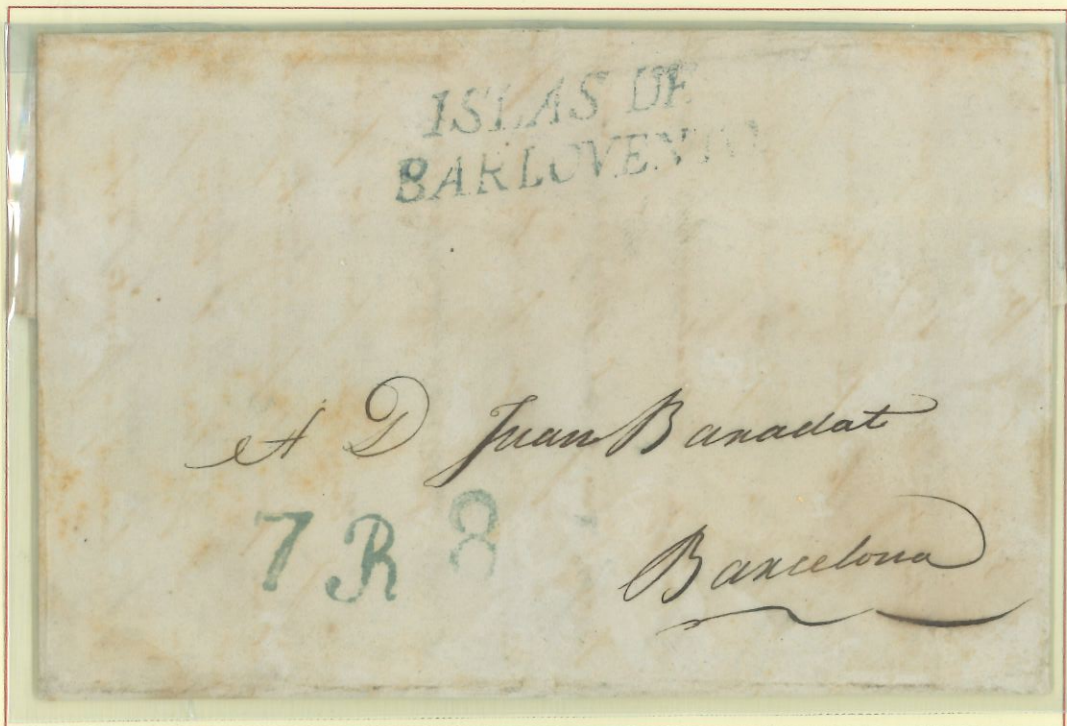 ISLAS DE
BARLOVENTO
A D Juan Banadat
7 R 8
Barcelona